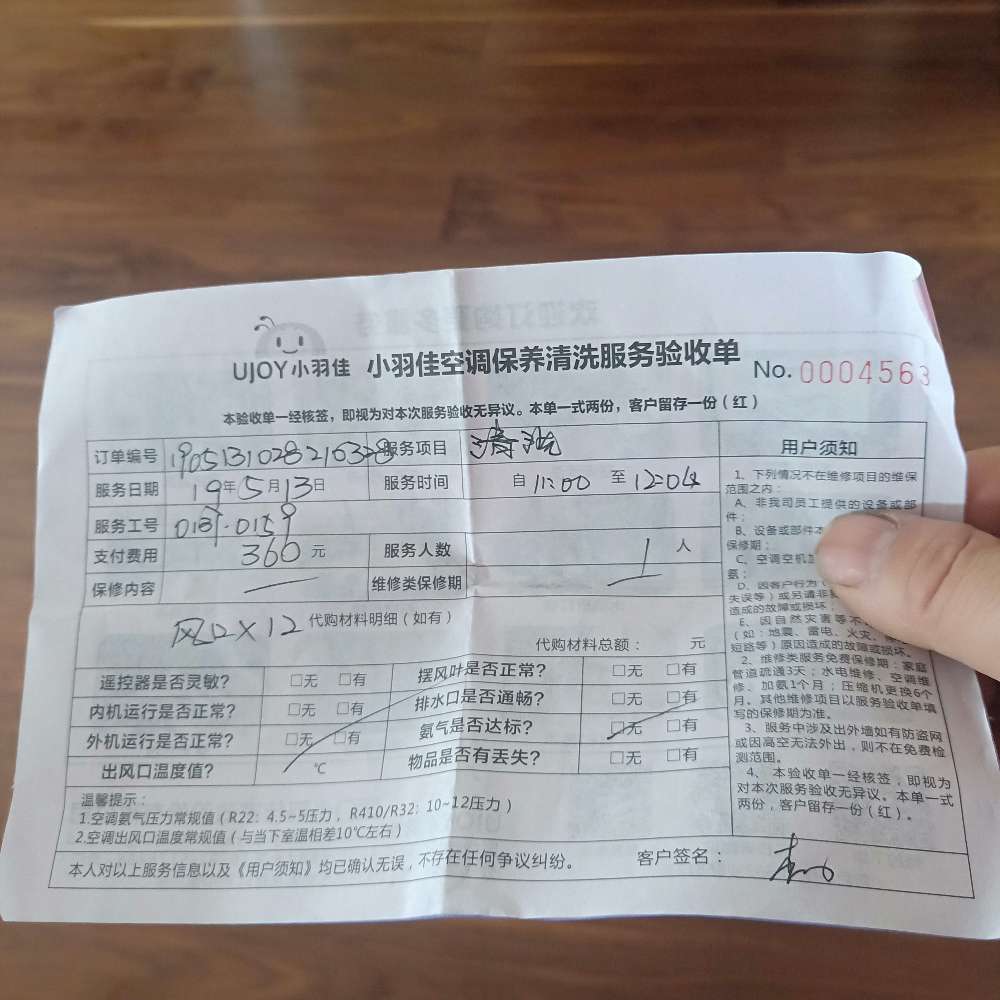 UJOY小羽佳 小羽佳空调保养清洗服务验收单 No. 0004563
本验收单一经核签，即视为对本次服务验收无异议。本单一式两份，客户留存一份（红）
订单编号 1905131028216328 服务项目 清洗
服务日期 19年5月13日 服务时间 自 11:00 至 12:04
服务工号 0137·0159
支付费用 360 元 服务人数 1 人
保修内容 — 维修类保修期 —
风口×12 代购材料明细（如有）
代购材料总额： 元
遥控器是否灵敏？ □无 □有 摆风叶是否正常？ □无 □有
内机运行是否正常？ □无 □有 排水口是否通畅？ □无 □有
外机运行是否正常？ □无 □有 氨气是否达标？ □无 □有
出风口温度值？ ℃ 物品是否有丢失？ □无 □有
温馨提示：
1.空调氨气压力常规值（R22：4.5~5压力，R410/R32：10~12压力）
2.空调出风口温度常规值（与当下室温相差10℃左右）
本人对以上服务信息以及《用户须知》均已确认无误，不存在任何争议纠纷。 客户签名：
用户须知
1、下列情况不在维修项目的维保
范围之内：
A、非我司员工提供的设备或部
件；
B、设备或部件
保修期；
C、空调空机加
氨；
D、因客户行为（
失误等）或另请非
造成的故障或损坏；
E、因自然灾害等不
（如：地震、雷电、火灾、
短路等）原因造成的故障或损坏。
2、维修类服务免费保修期：家庭
管道疏通3天；水电维修、空调维
修、加氨1个月；压缩机更换6个
月。其他维修项目以服务验收单填
写的保修期为准。
3、服务中涉及出外墙如有防盗网
或因高空无法外出，则不在免费检
测范围。
4、本验收单一经核签，即视为
对本次服务验收无异议。本单一式
两份，客户留存一份（红）。